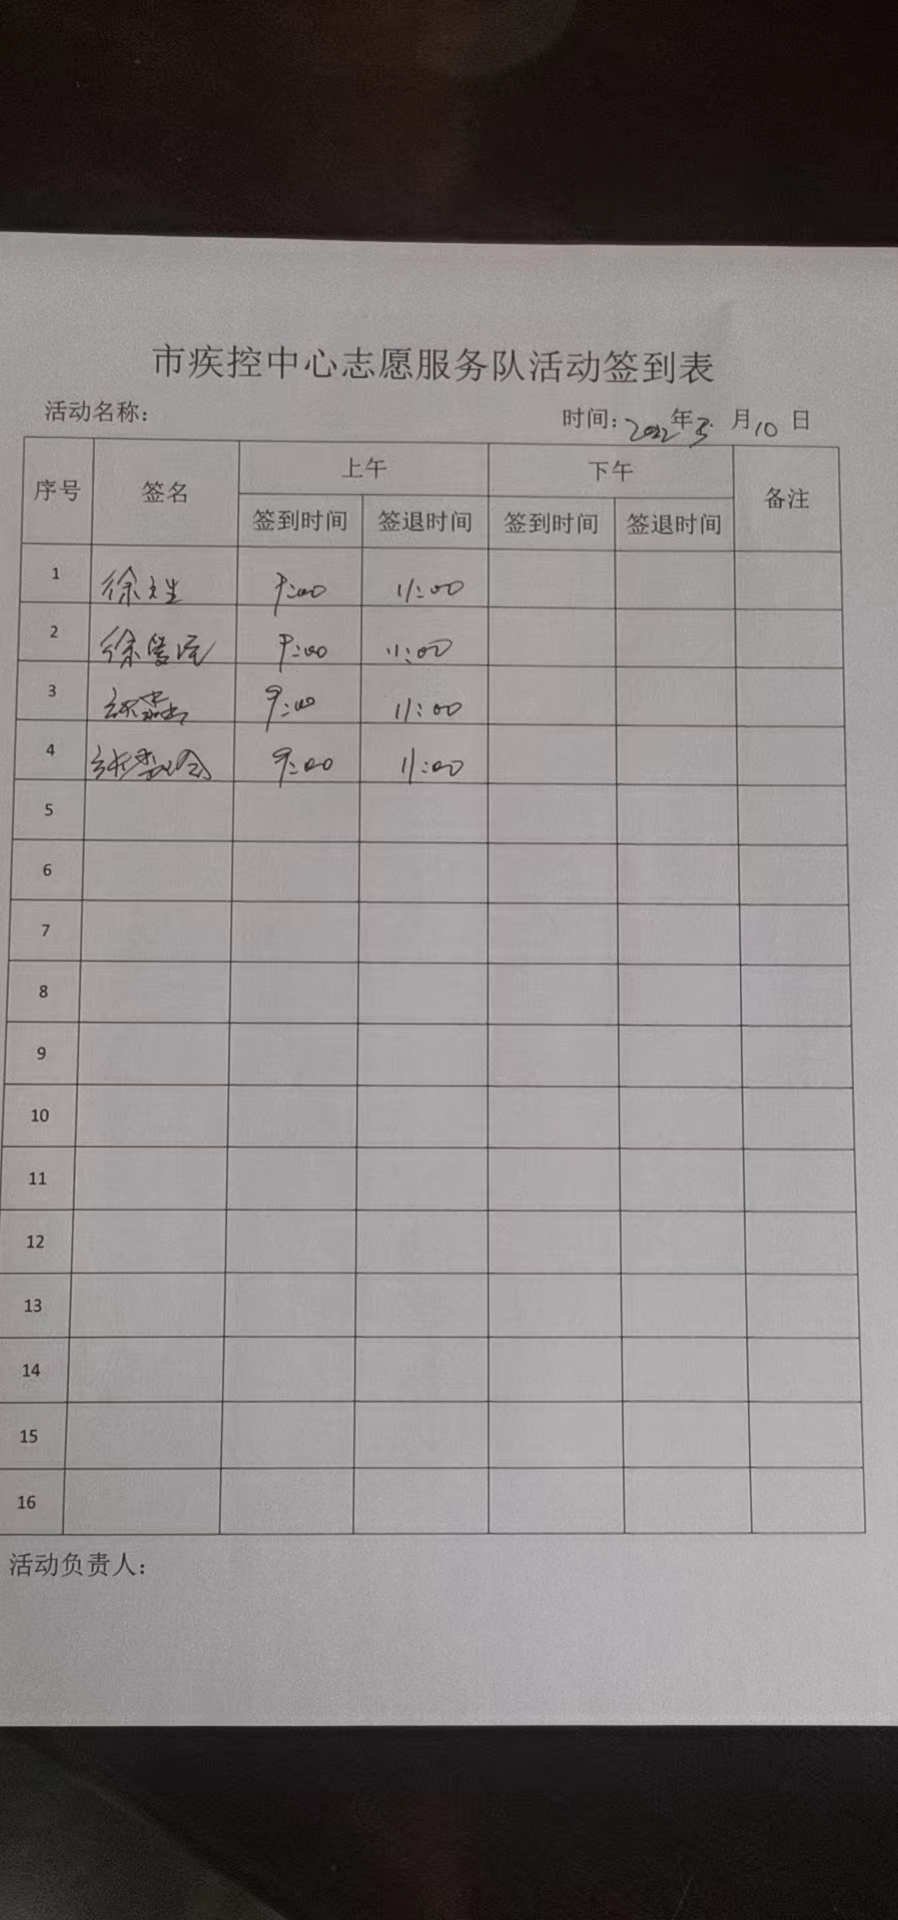 市疾控中心志愿服务队活动签到表
活动名称： 时间：2022年3月10日
序号 签名 上午 下午 备注
签到时间 签退时间 签到时间 签退时间
1 徐 9:00 11:00
2 徐 9:00 11:00
3 张 9:00 11:00
4 张 9:00 11:00
5
6
7
8
9
10
11
12
13
14
15
16
活动负责人：